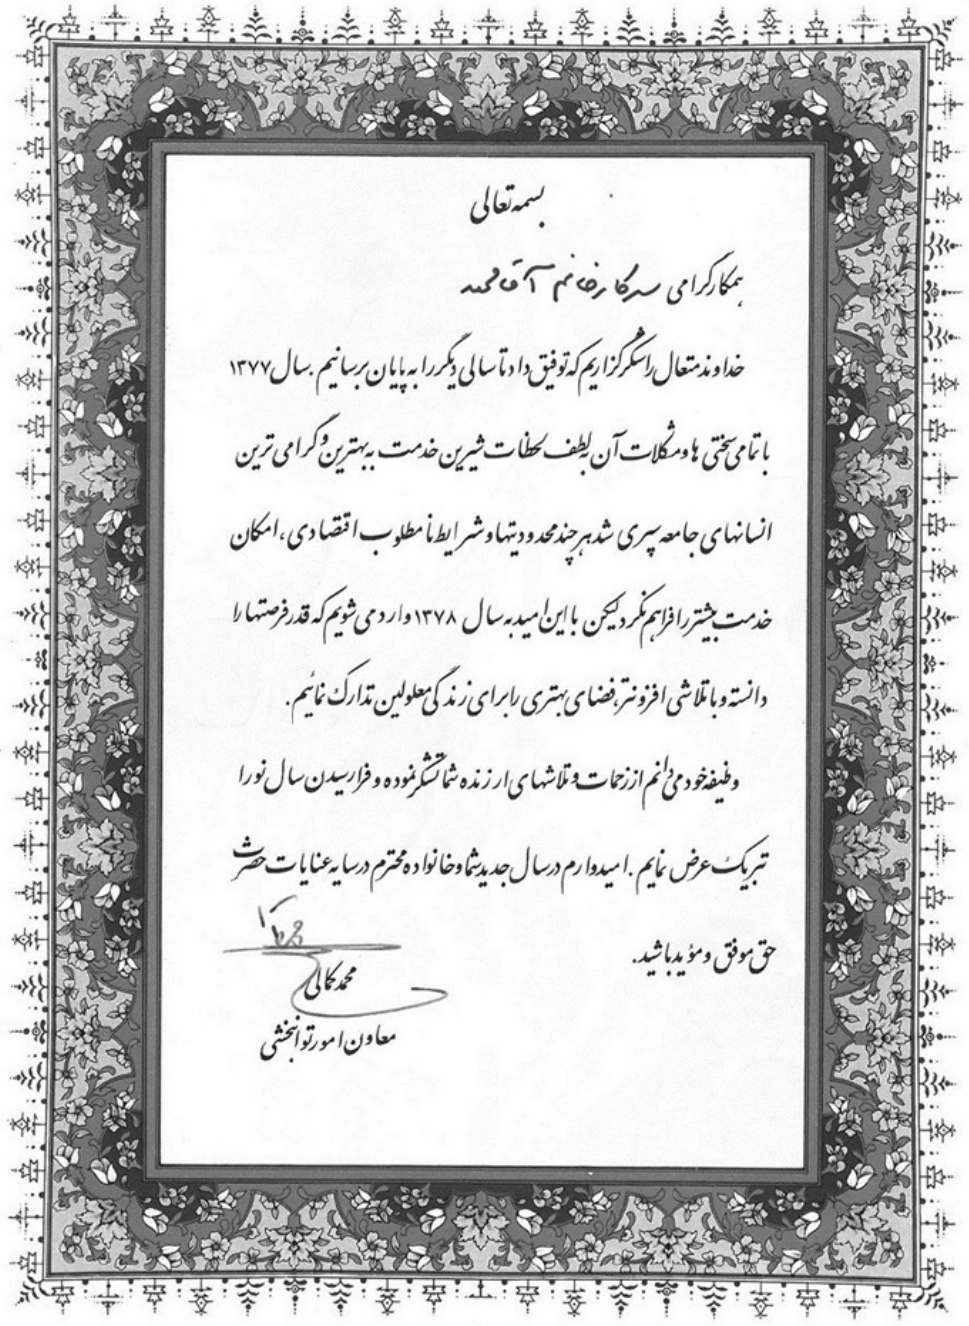 بسمه تعالی
همکار گرامی سرکار خانم آقامحمد
خداوند متعال را شکرگزاریم که توفیق داد تا سالی دیگر را به پایان برسانیم . سال ۱۳۷۷
با تمامی سختی ها و مشکلات آن به لطف لحظات شیرین خدمت به بهترین و گرامی ترین
انسانهای جامعه سپری شد هر چند محدودیتها و شرایط نامطلوب اقتصادی ، امکان
خدمت بیشتر را فراهم نکرد لیکن با این امید به سال ۱۳۷۸ وارد می شویم که قدر فرصتها را
دانسته و با تلاشی افزونتر، فضای بهتری را برای زندگی معلولین تدارک نمائیم .
وظیفه خود می دانم از زحمات و تلاشهای ارزنده شما تشکر نموده و فرا رسیدن سال نو را
تبریک عرض نمایم . امیدوارم در سال جدید شما و خانواده محترم در سایه عنایات حضرت
حق موفق و مؤید باشید .
محمد کمالی
معاون امور توانبخشی